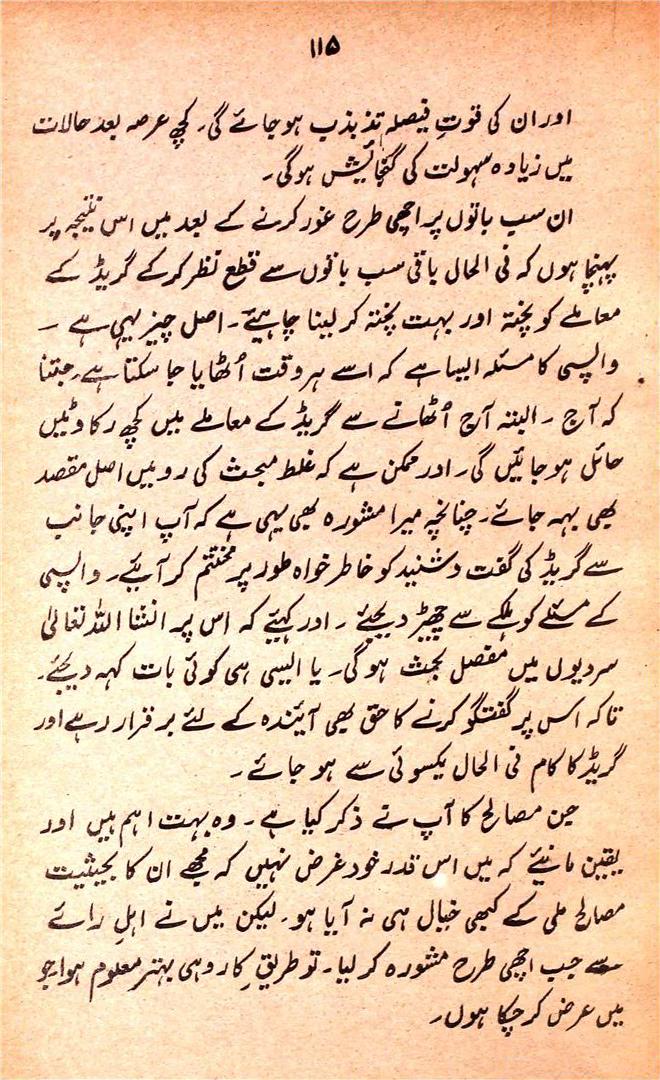 ۱۱۵
اور ان کی قوتِ فیصلہ تذبذب ہو جائے گی۔ کچھ عرصہ بعد حالات
میں زیادہ سہولت کی گنجائیش ہوگی۔
ان سب باتوں پر اچھی طرح غور کرنے کے بعد میں اس نتیجہ پر
پہنچا ہوں کہ فی الحال باقی سب باتوں سے قطع نظر کر کے گریڈ کے
معاملے کو پختہ اور بہت پختہ کر لینا چاہیئے۔ اصل چیز یہی ہے ۔
واپسی کا مسئلہ ایسا ہے کہ اسے ہر وقت اُٹھایا جا سکتا ہے۔ جتنا
کہ آج ۔ البتہ آج اُٹھانے سے گریڈ کے معاملے میں کچھ رکاوٹیں
حائل ہو جائیں گی۔ اور ممکن ہے کہ غلط مبحث کی رو میں اصل مقصد
بھی بہہ جائے۔ چنانچہ میرا مشورہ بھی یہی ہے کہ آپ اپنی جانب
سے گریڈ کی گفت و شنید کو خاطر خواہ طور پر مختتم کر آیئے۔ واپسی
کے مسئلے کو ہلکے سے چھیڑ دیجئے ۔ اور کہیئے کہ اس پر انشا اللہ تعالیٰ
سردیوں میں مفصل بحث ہوگی۔ یا ایسی ہی کوئی بات کہہ دیجئے۔
تاکہ اس پر گفتگو کرنے کا حق بھی آیندہ کے لئے برقرار رہے اور
گریڈ کا کام فی الحال یکسوئی سے ہو جائے ۔
جن مصالح کا آپ نے ذکر کیا ہے ۔ وہ بہت اہم ہیں اور
یقین مانیئے کہ میں اس قدر خود غرض نہیں کہ مجھے ان کا بحیثیت
مصالح ملی کے کبھی خیال ہی نہ آیا ہو۔ لیکن میں نے اہلِ رائے
سے جب اچھی طرح مشورہ کر لیا۔ تو طریقِ کار وہی بہتر معلوم ہوا جو
میں عرض کر چکا ہوں۔